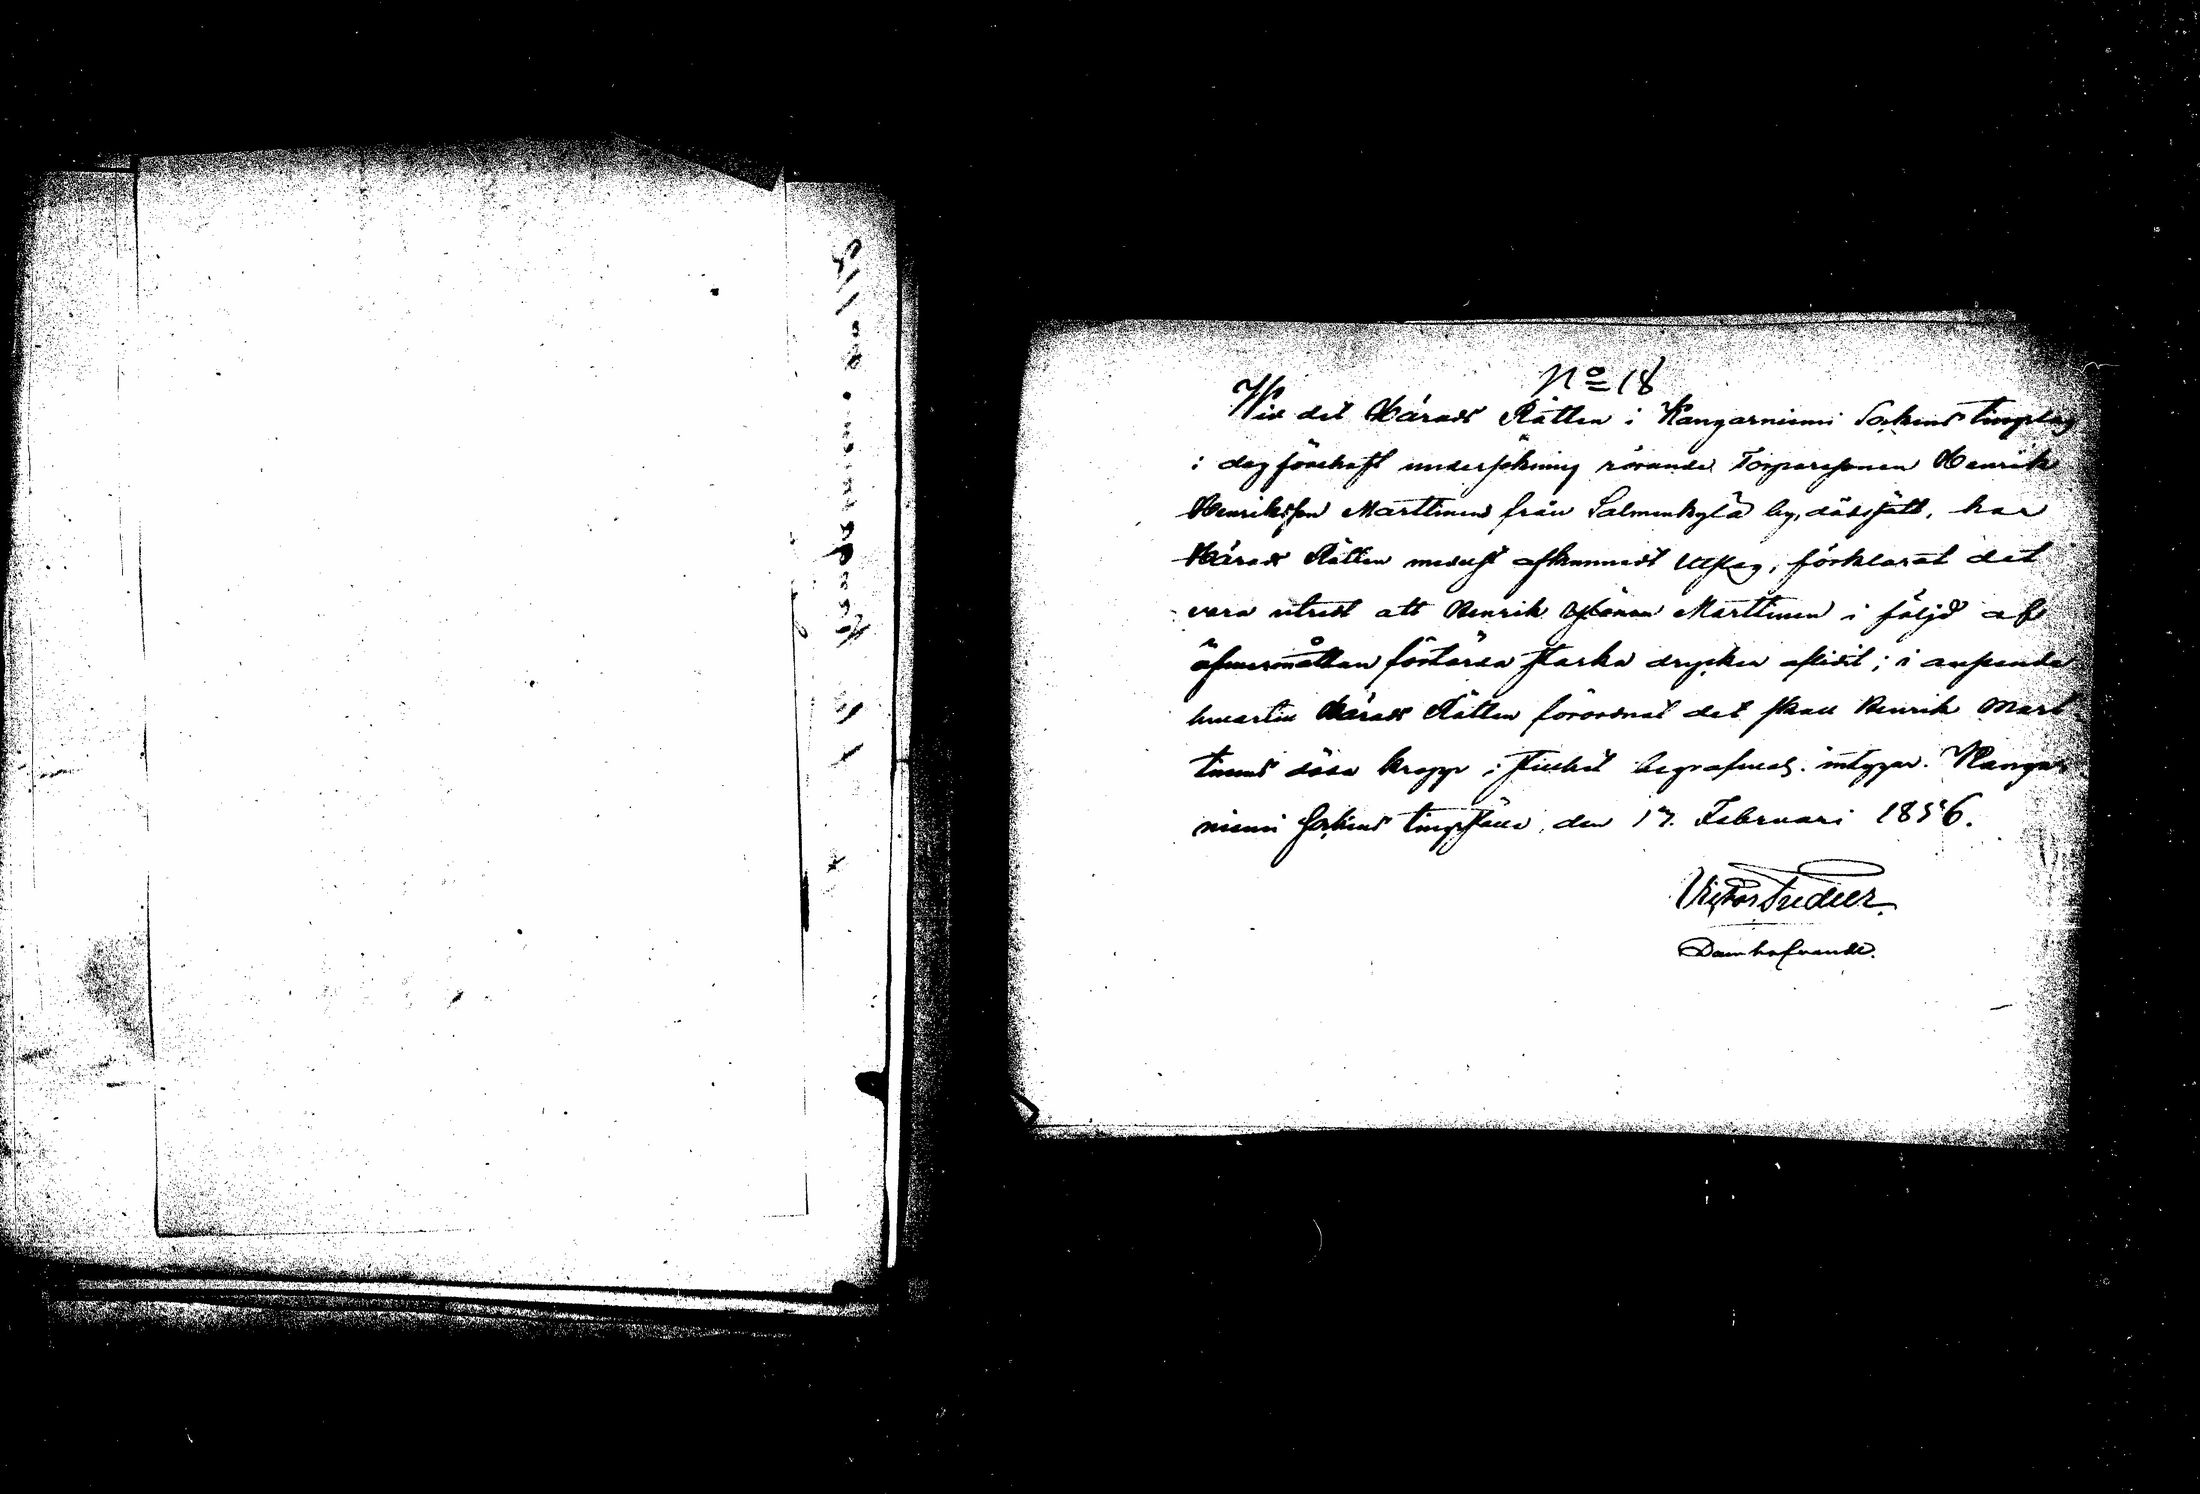 No 18
Wid det Härads Rätten i Kangasniemi Sockens tingslag
i dag förehaft undersökning rörande Torparesonen Henrik
Henriksson Marttinens från Salmenkylä by, dödssätt, har
Härads Rätten medelst afkunnadt Utslag, förklarat det
vara utredt att Henrik Marttinen i följd af
öfvermåttan förtärda starka drycker aflidit; i anseende
hvartill Härads Rätten förordnat det skall Henrik Mart
tinens döda kropp i stillhet begrafvas. intygar. Kangas
niemi Sockens tingställe, den 17. Februari 1856.
Victor
Domhafvande.